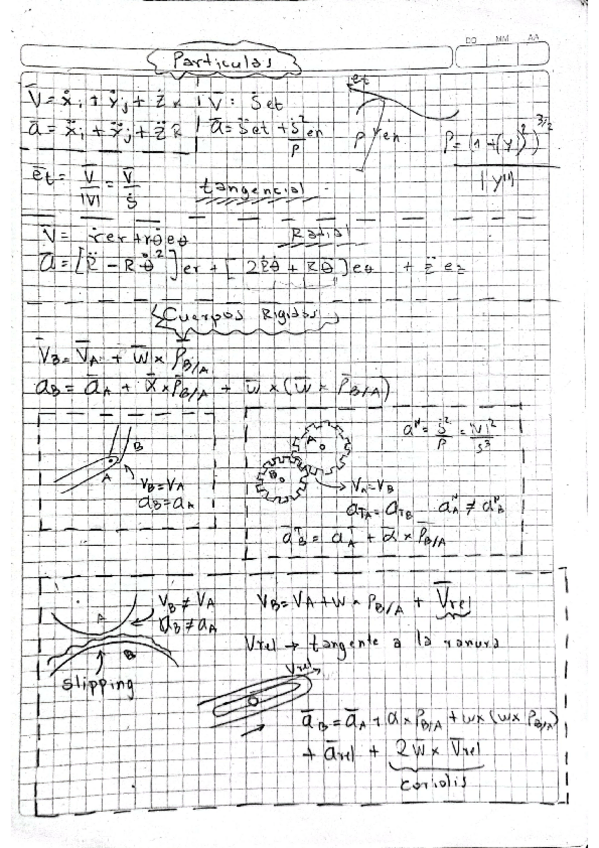 DD MM AA
Particulas
V̄ = ẋi + ẏj + żk | V̄ : ṡ et
ā = ẍi + ÿj + z̈k | ā = s̈et + ṡ²/ρ en
et
ρ en
ρ = (1 + (y')²)^3/2 / |y''|
ēt = V̄/|V| = V̄/ṡ
tangencial
V̄ = ṙer + rθ̇ eθ
Radial
ā = [R̈ - Rθ̇²] er + [2Ṙθ̇ + Rθ̈] eθ + z̈ ez
Cuerpos Rigidos
V̄B = V̄A + w̄ × ρ̄B/A
aB = āA + ᾱ × ρ̄B/A + w̄ × (w̄ × ρ̄B/A)
B
A
VB = VA
aB = aA
A
B
aᴺ = ṡ²/ρ = |V|²/ρ
VA = VB
aTA = aTB aᴺA ≠ aᴺB
āᵀB = āᵀA + ᾱ × ρ̄B/A
A
B
VB ≠ VA
aB ≠ aA
slipping
VB = VA + w × ρB/A + V̄rel
Vrel → tangente a la ranura
Vrel
āB = āA + α × ρB/A + w × (w × ρB/A)
+ ārel + 2w̄ × V̄rel
coriolis